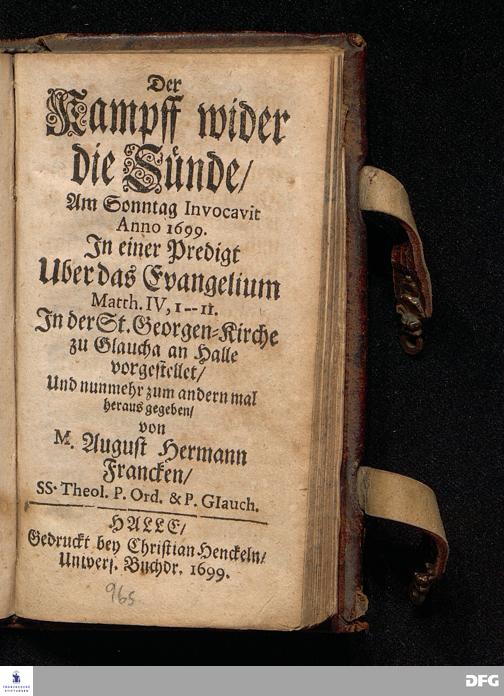 Der
Kampff wider
die Sünde/
Am Sonntag Invocavit
Anno 1699.
In einer Predigt
Uber das Evangelium
Matth. IV, 1--11.
In der St. Georgen-Kirche
zu Glaucha an Halle
vorgestellet/
Und nunmehr zum andern mal
heraus gegeben/
von
M. August Hermann
Francken/
SS. Theol. P. Ord. & P. Glauch.
HALLE/
Gedruckt bey Christian Henckeln/
Univers. Buchdr. 1699.
965
FRANCKESCHE
STIFTUNGEN
DFG